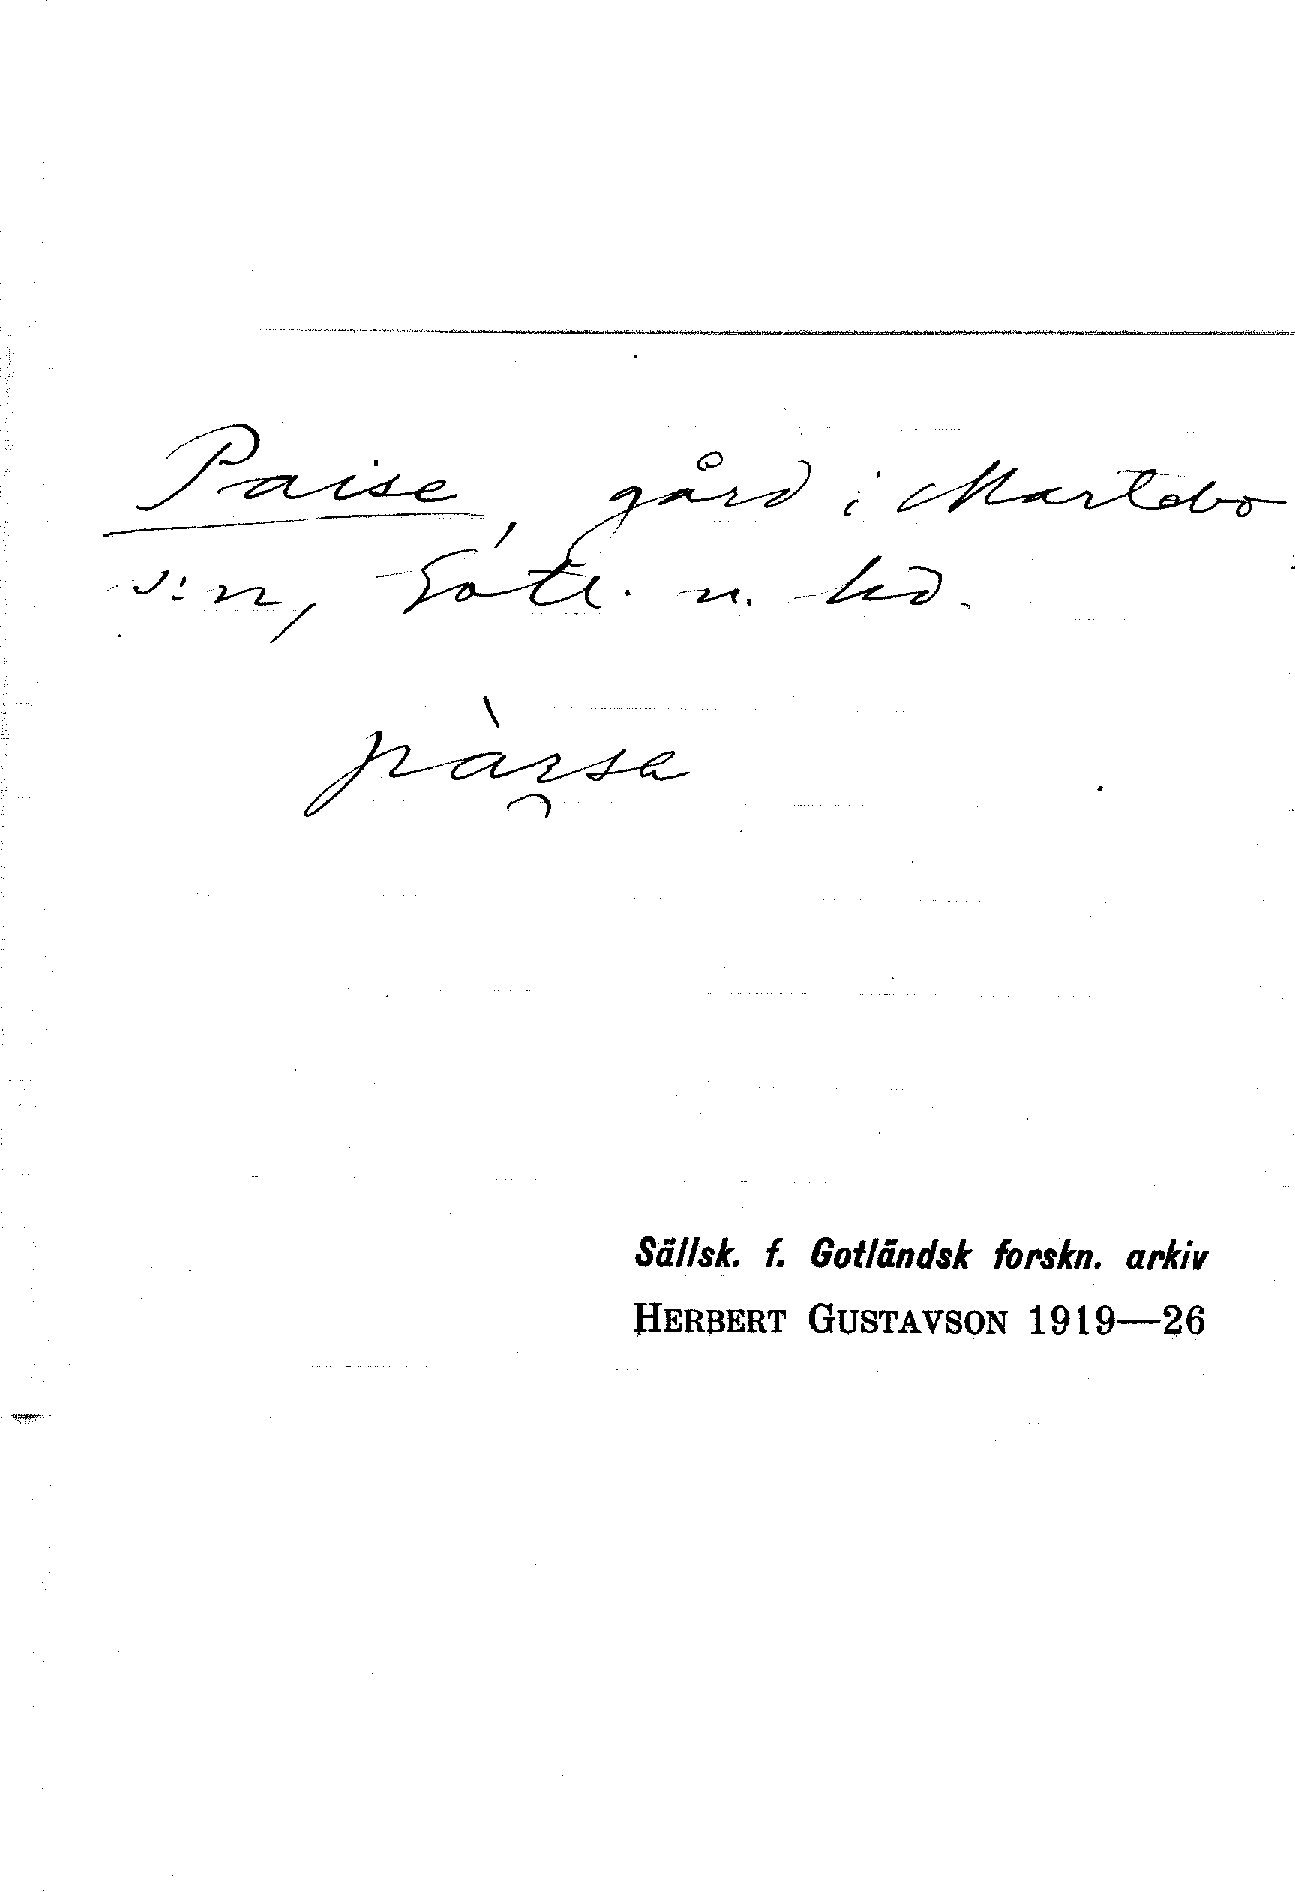 Paise, gård i Martebo
s:n, Gotl. n. hd.
pàısa
Sällsk. f. Gotländsk forskn. arkiv
HERBERT GUSTAVSON 1919—26